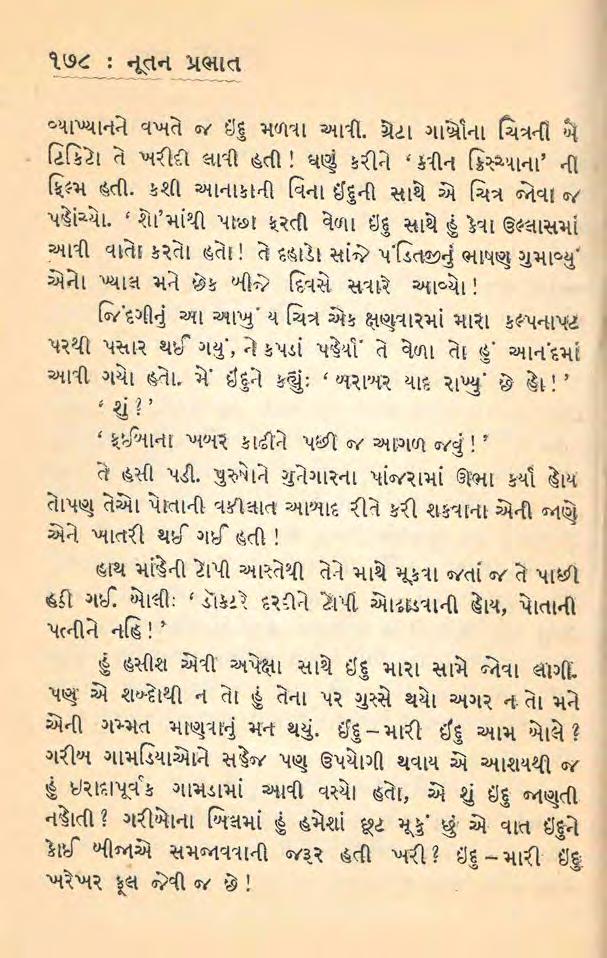 ૧૭૮ : નૂતન પ્રભાત
વ્યાખ્યાનને વખતે જ ઇંદુ મળવા આવી. ગ્રેટા ગાર્બોના ચિત્રની બે
ટિકિટો તે ખરીદી લાવી હતી! ઘણું કરીને ‘ ક્વીન ક્રિસ્ચ્યાના’ ની
ફિલ્મ હતી. કશી આનાકાની વિના ઇંદુની સાથે એ ચિત્ર જોવા જ
પહોંચ્યો. ‘ શો’માંથી પાછા ફરતી વેળા ઇંદુ સાથે હું કેવા ઉલ્લાસમાં
આવી વાતો કરતો હતો! તે દહાડો સાંજે પંડિતજીનું ભાષણ ગુમાવ્યું
એનો ખ્યાલ મને છેક બીજે દિવસે સવારે આવ્યો!
જિંદગીનું આ આખું ય ચિત્ર એક ક્ષણવારમાં મારા કલ્પનાપટ
પરથી પસાર થઈ ગયું, ને કપડાં પહેર્યાં તે વેળા તો હું આનંદમાં
આવી ગયો હતો. મેં ઇંદુને કહ્યું: ‘ બરાબર યાદ રાખ્યું છે હો!’
‘ શું?’
‘ ફઈબાના ખબર કાઢીને પછી જ આગળ જવું!’
તે હસી પડી. પુરુષોને ગુનેગારના પાંજરામાં ઊભા કર્યા હોય
તોપણ તેઓ પોતાની વકીલાત આબાદ રીતે કરી શકવાના એની જાણે
એને ખાતરી થઈ ગઈ હતી!
હાથ માંહેની ટોપી આસ્તેથી તેને માથે મૂકવા જતાં જ તે પાછી
હઠી ગઈ. બોલી: ‘ ડૉક્ટરે દરદીને ટોપી ઓઢાડવાની હોય, પોતાની
પત્નીને નહિ!’
હું હસીશ એવી અપેક્ષા સાથે ઇંદુ મારા સામે જોવા લાગી.
પણ એ શબ્દોથી ન તો હું તેના પર ગુસ્સે થયો અગર ન તો મને
એની ગમ્મત માણવાનું મન થયું. ઇંદુ – મારી ઇંદુ આમ બોલે?
ગરીબ ગામડિયાઓને સહેજ પણ ઉપયોગી થવાય એ આશયથી જ
હું ઇરાદાપૂર્વક ગામડામાં આવી વસ્યો હતો, એ શું ઇંદુ જાણતી
નહોતી? ગરીબોના બિલમાં હું હમેશાં છૂટ મૂકું છું એ વાત ઇંદુને
કોઈ બીજાએ સમજાવવાની જરૂર હતી ખરી? ઇંદુ – મારી ઇંદુ
ખરેખર ફૂલ જેવી જ છે!